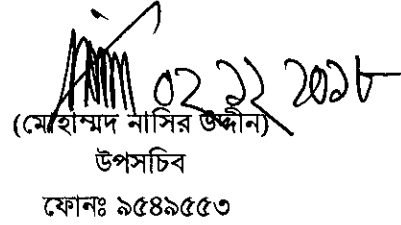 ০২ ১২ ২০১৮
(মোহাম্মদ নাসির উদ্দীন)
উপসচিব
ফোনঃ ৯৫৪৯৫৫৩